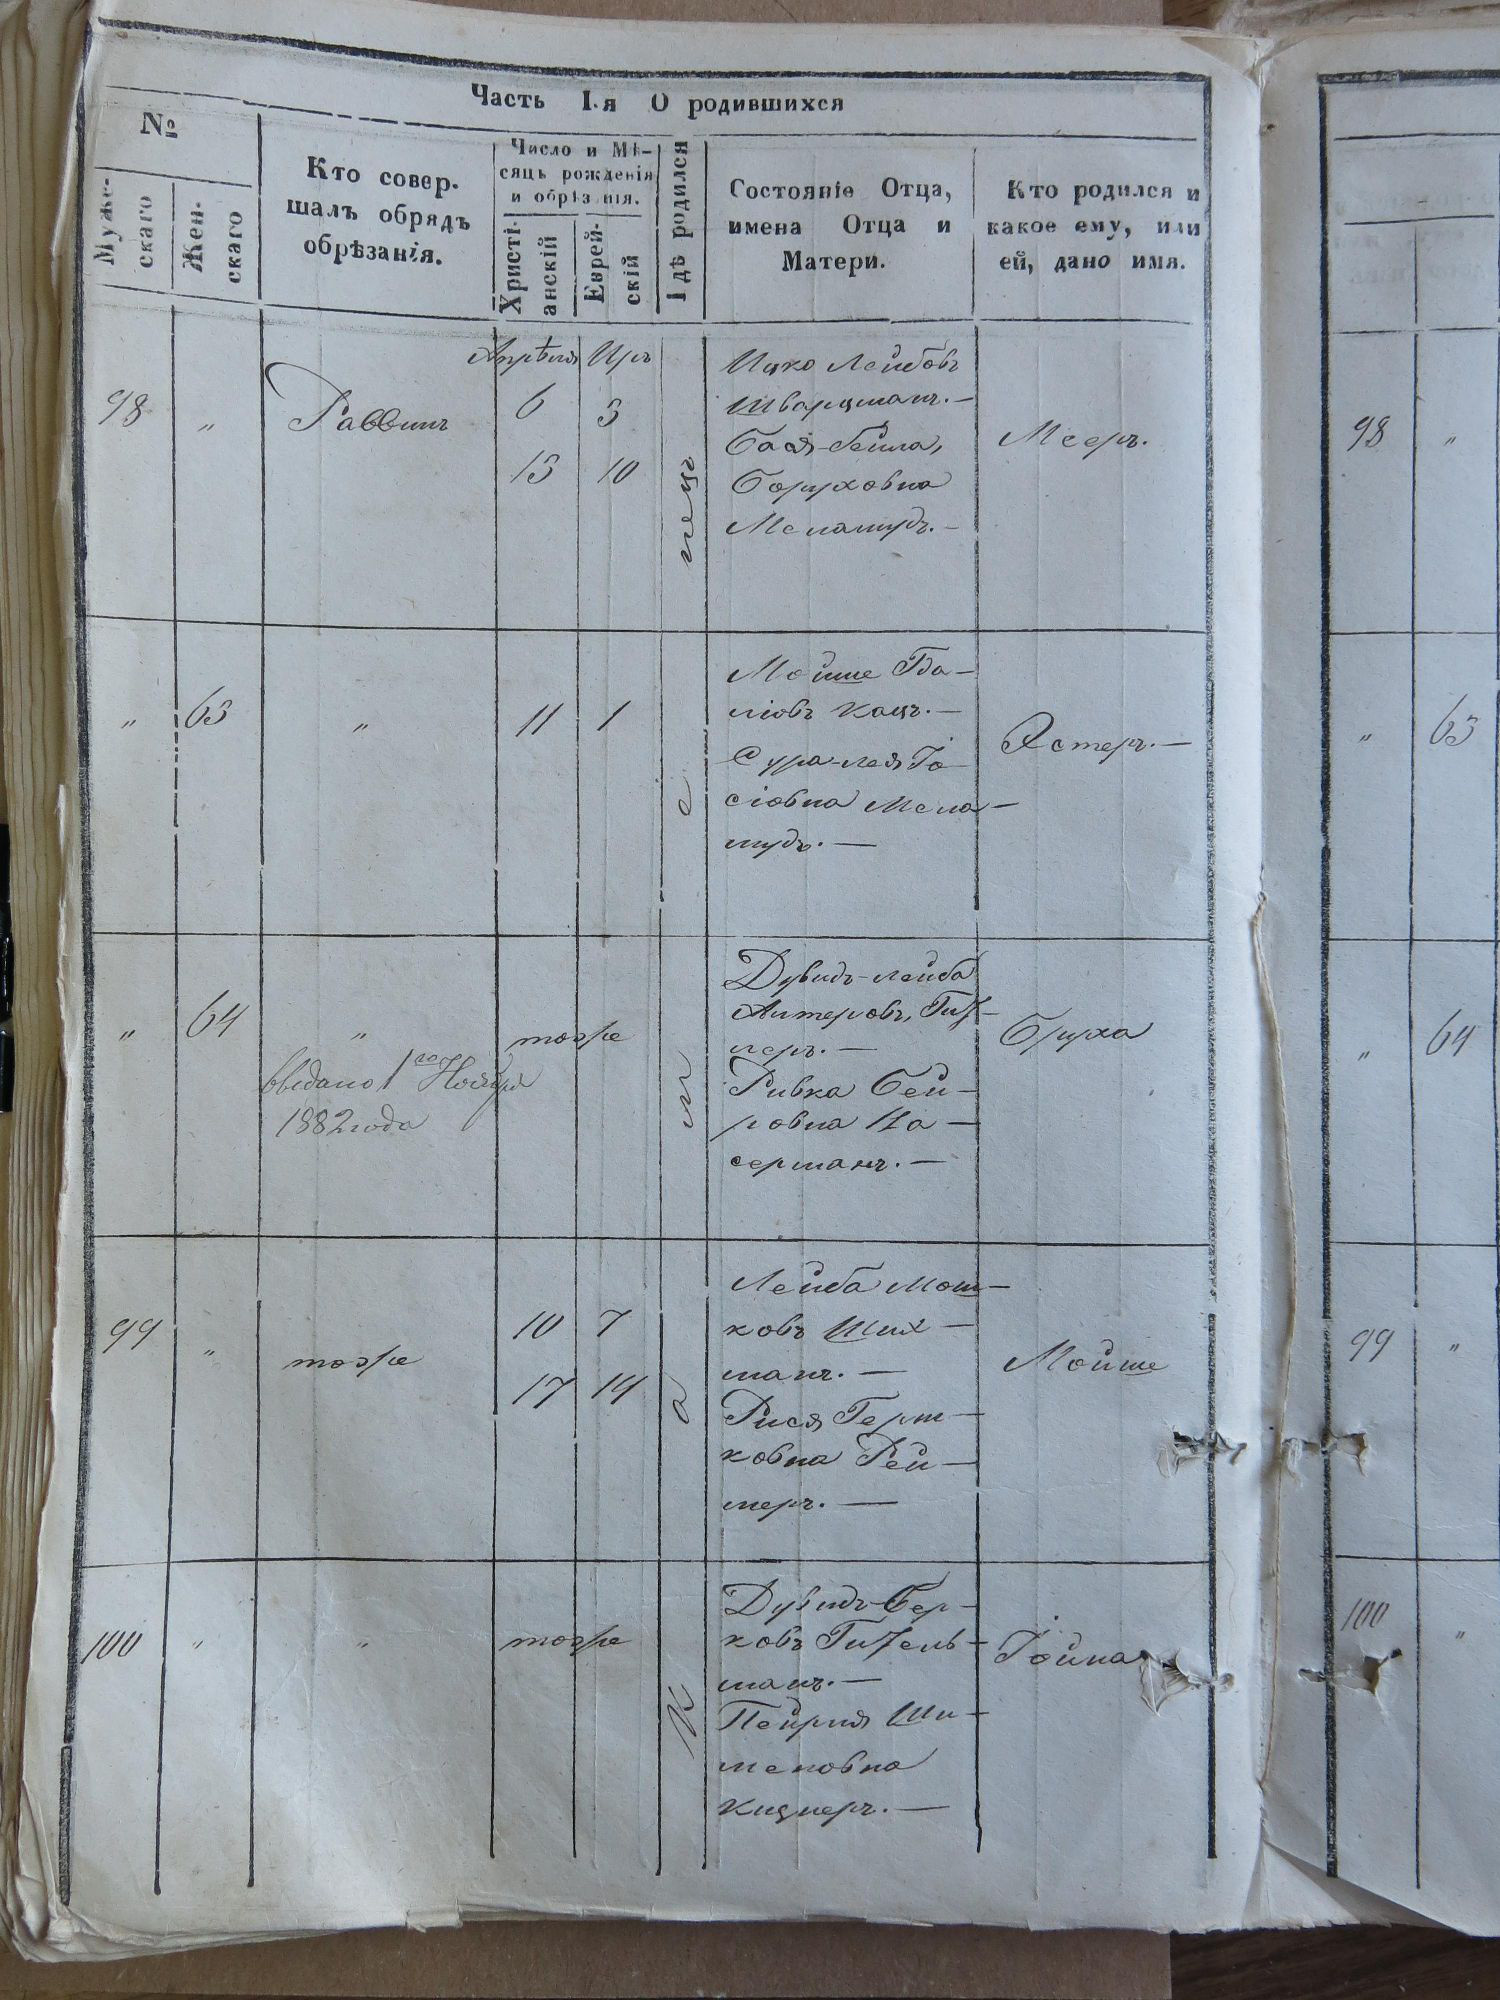 Часть I-я О родившихся
№
Муже-
скаго
Жен-
скаго
Кто совер-
шалъ обрядъ
обрѣзанія.
Число и Мѣ-
сяцъ рожденія
и обрѣзанія.
Христі-
анскій
Еврей-
скій
Гдѣ родился
Состояніе Отца,
имена Отца и
Матери.
Кто родился и
какое ему, или
ей, дано имя.
Каменецъ
98 " Раввинъ
Апрѣля Иръ
6 3
13 10
Ицко Лейбовъ
Шварцманъ. —
Бася-Бейла,
Боруховна
Меламудъ. —
Мееръ.
" 63 " 11 1
Мойше
Кацъ. —
Сура-Лея Іо-
сіовна Мела-
мудъ. —
Эстеръ. —
" 64 " тоже
выдано 1го Ноября
1882 года
Дувидъ-Лейба
Алтеровъ,
Ривка Бей-
ровна
серманъ. —
Бруха
99 " тоже
10 7
17 14
Лейба Мош-
ковъ Ших-
манъ. —
Рися Герш-
ковна Рей-
меръ. —
Мойше
100 " " тоже
Дувидъ-Бер-
ковъ Гитель-
манъ. —
Пейрия Ши-
меновна
Кицнеръ. —
Іойна
98 "
" 63
" 64
99 "
100 "